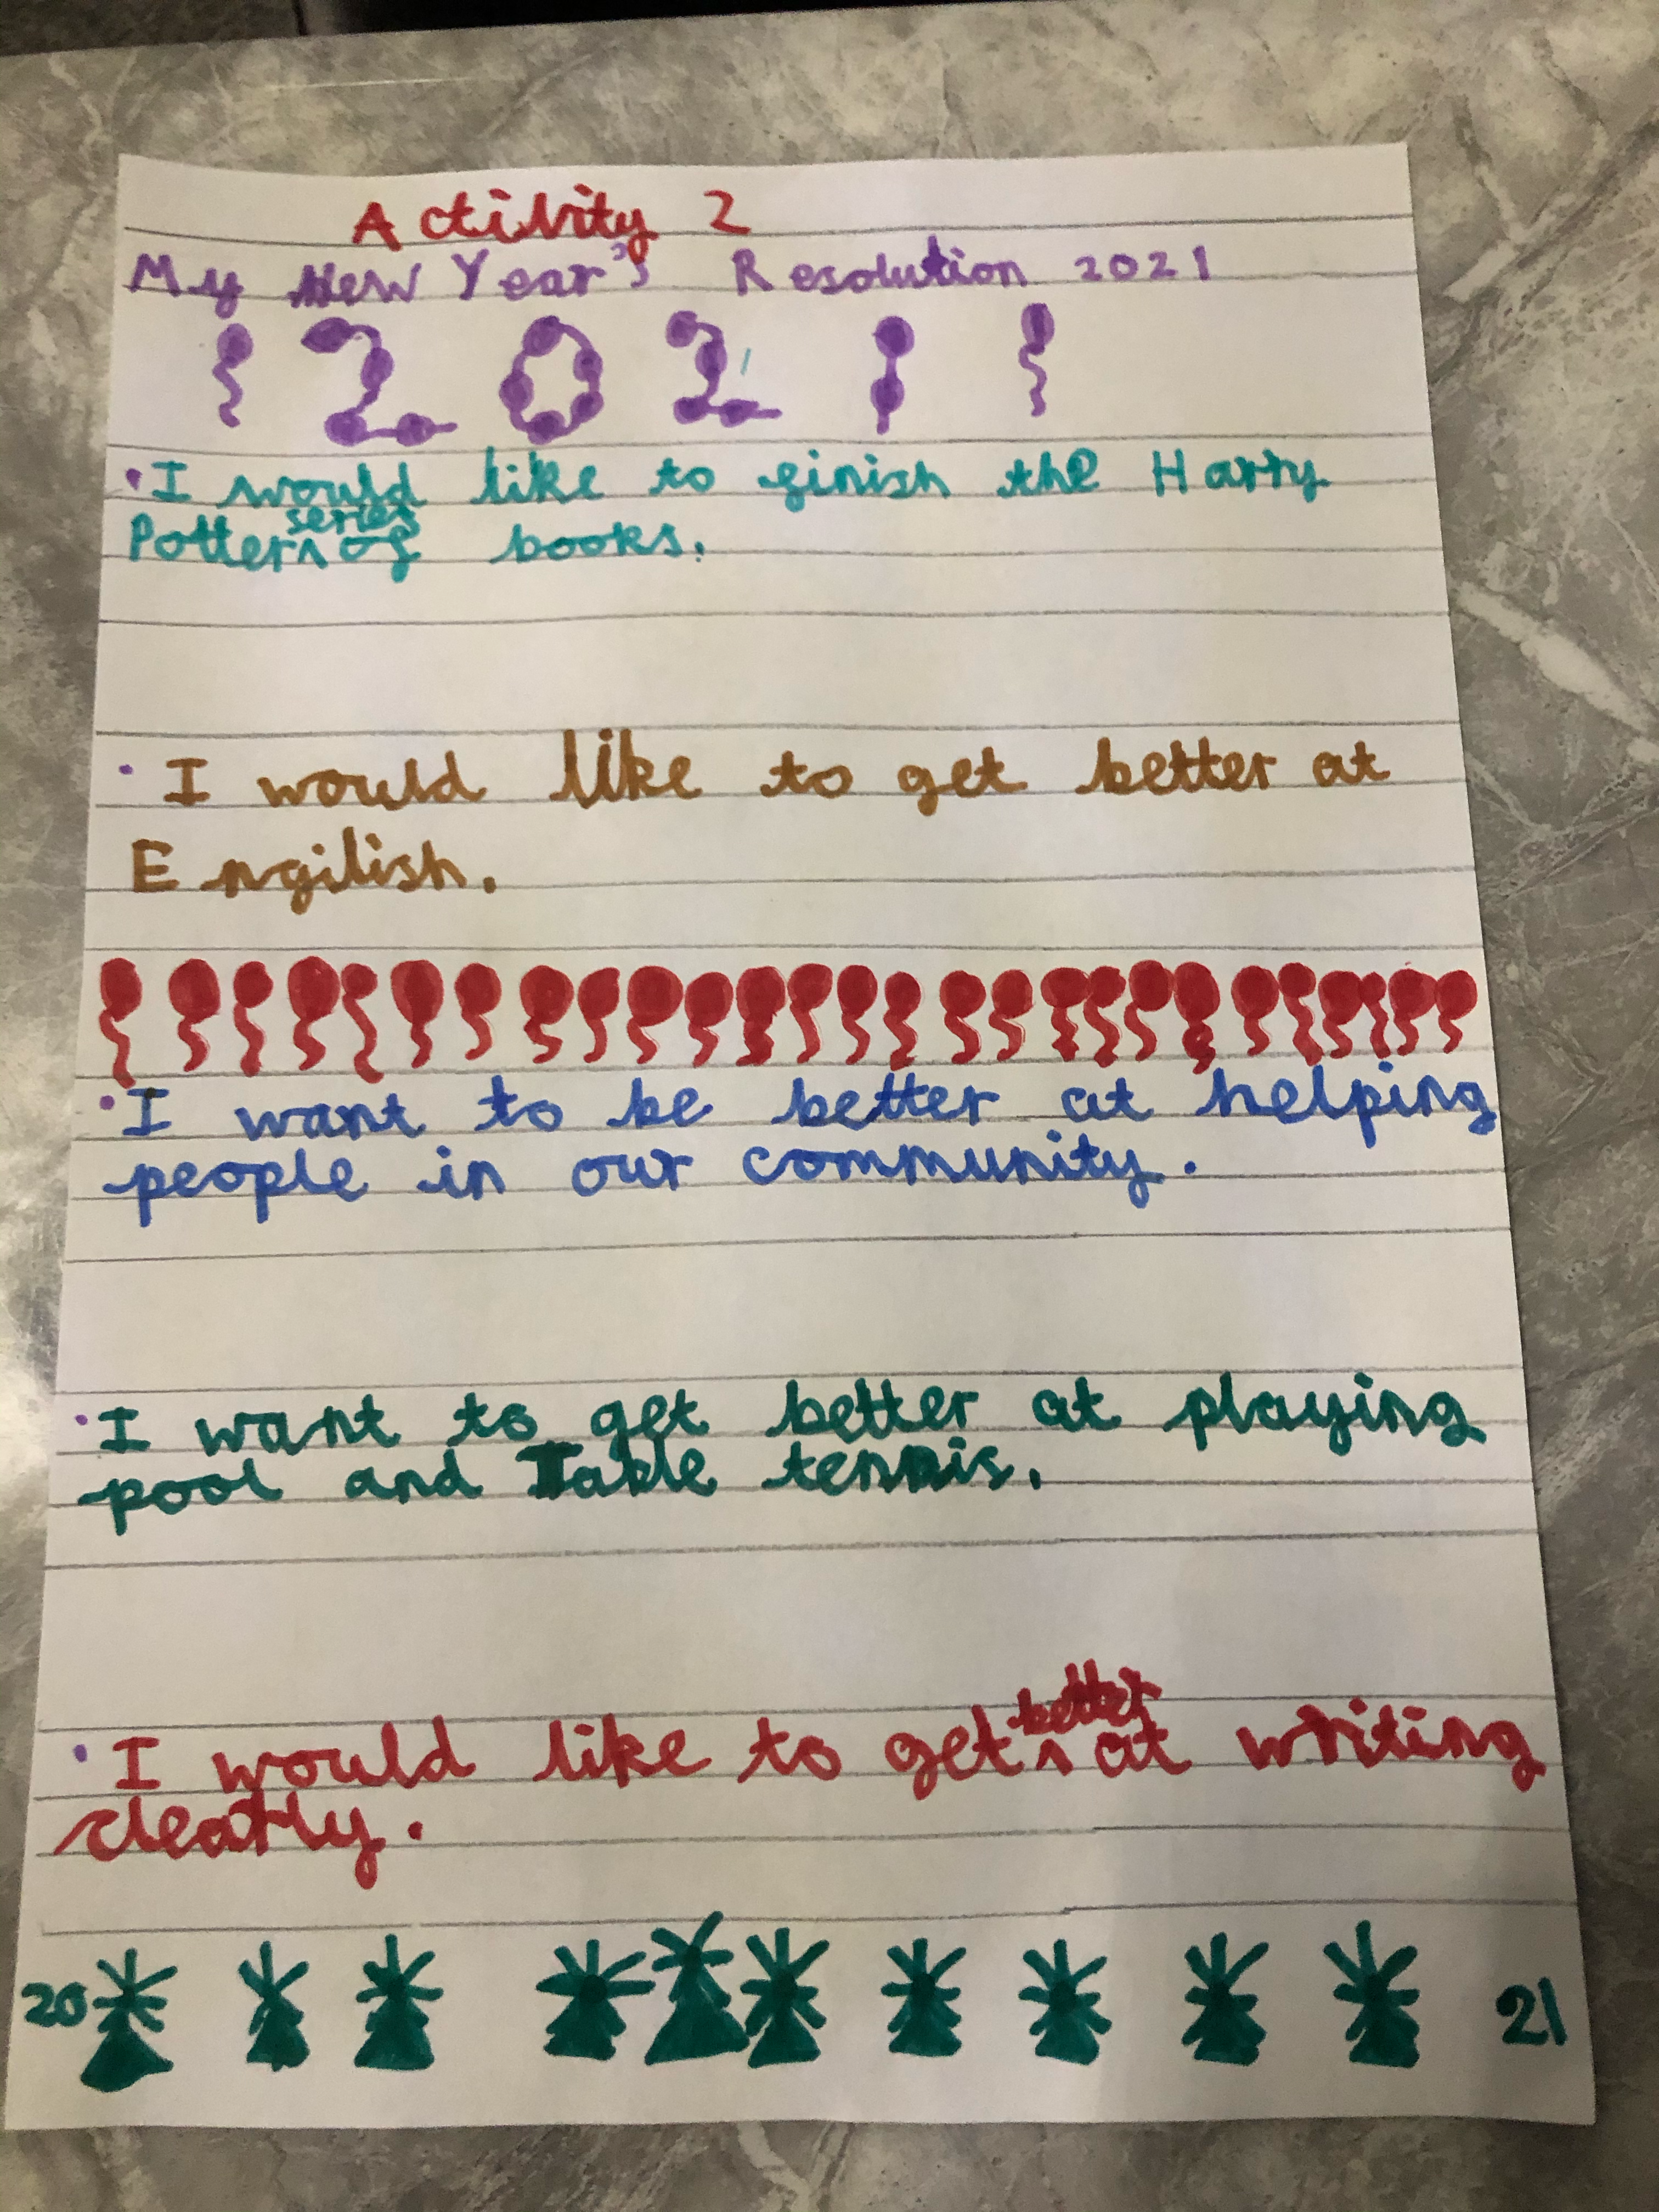 Activity 2
My New Year's Resolution 2021
2021
• I would like to finish the Harry
Potter series of books.
• I would like to get better at
Engilish.
• I want to be better at helping
people in our community.
• I want to get better at playing
pool and Table tennis.
• I would like to get better at writing
clearly.
20 21